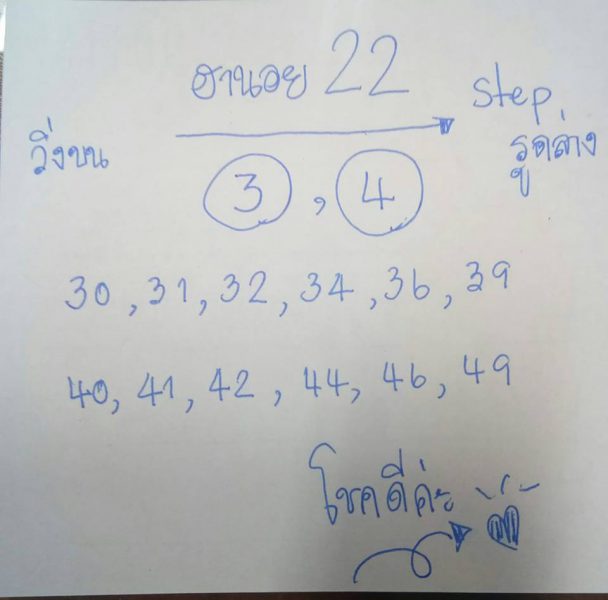 ฮานอย 22
วิ่งบน
step
รูดล่าง
3 , 4
30 , 31 , 32 , 34 , 36 , 39
40 , 41 , 42 , 44 , 46 , 49
โชคดีค่ะ